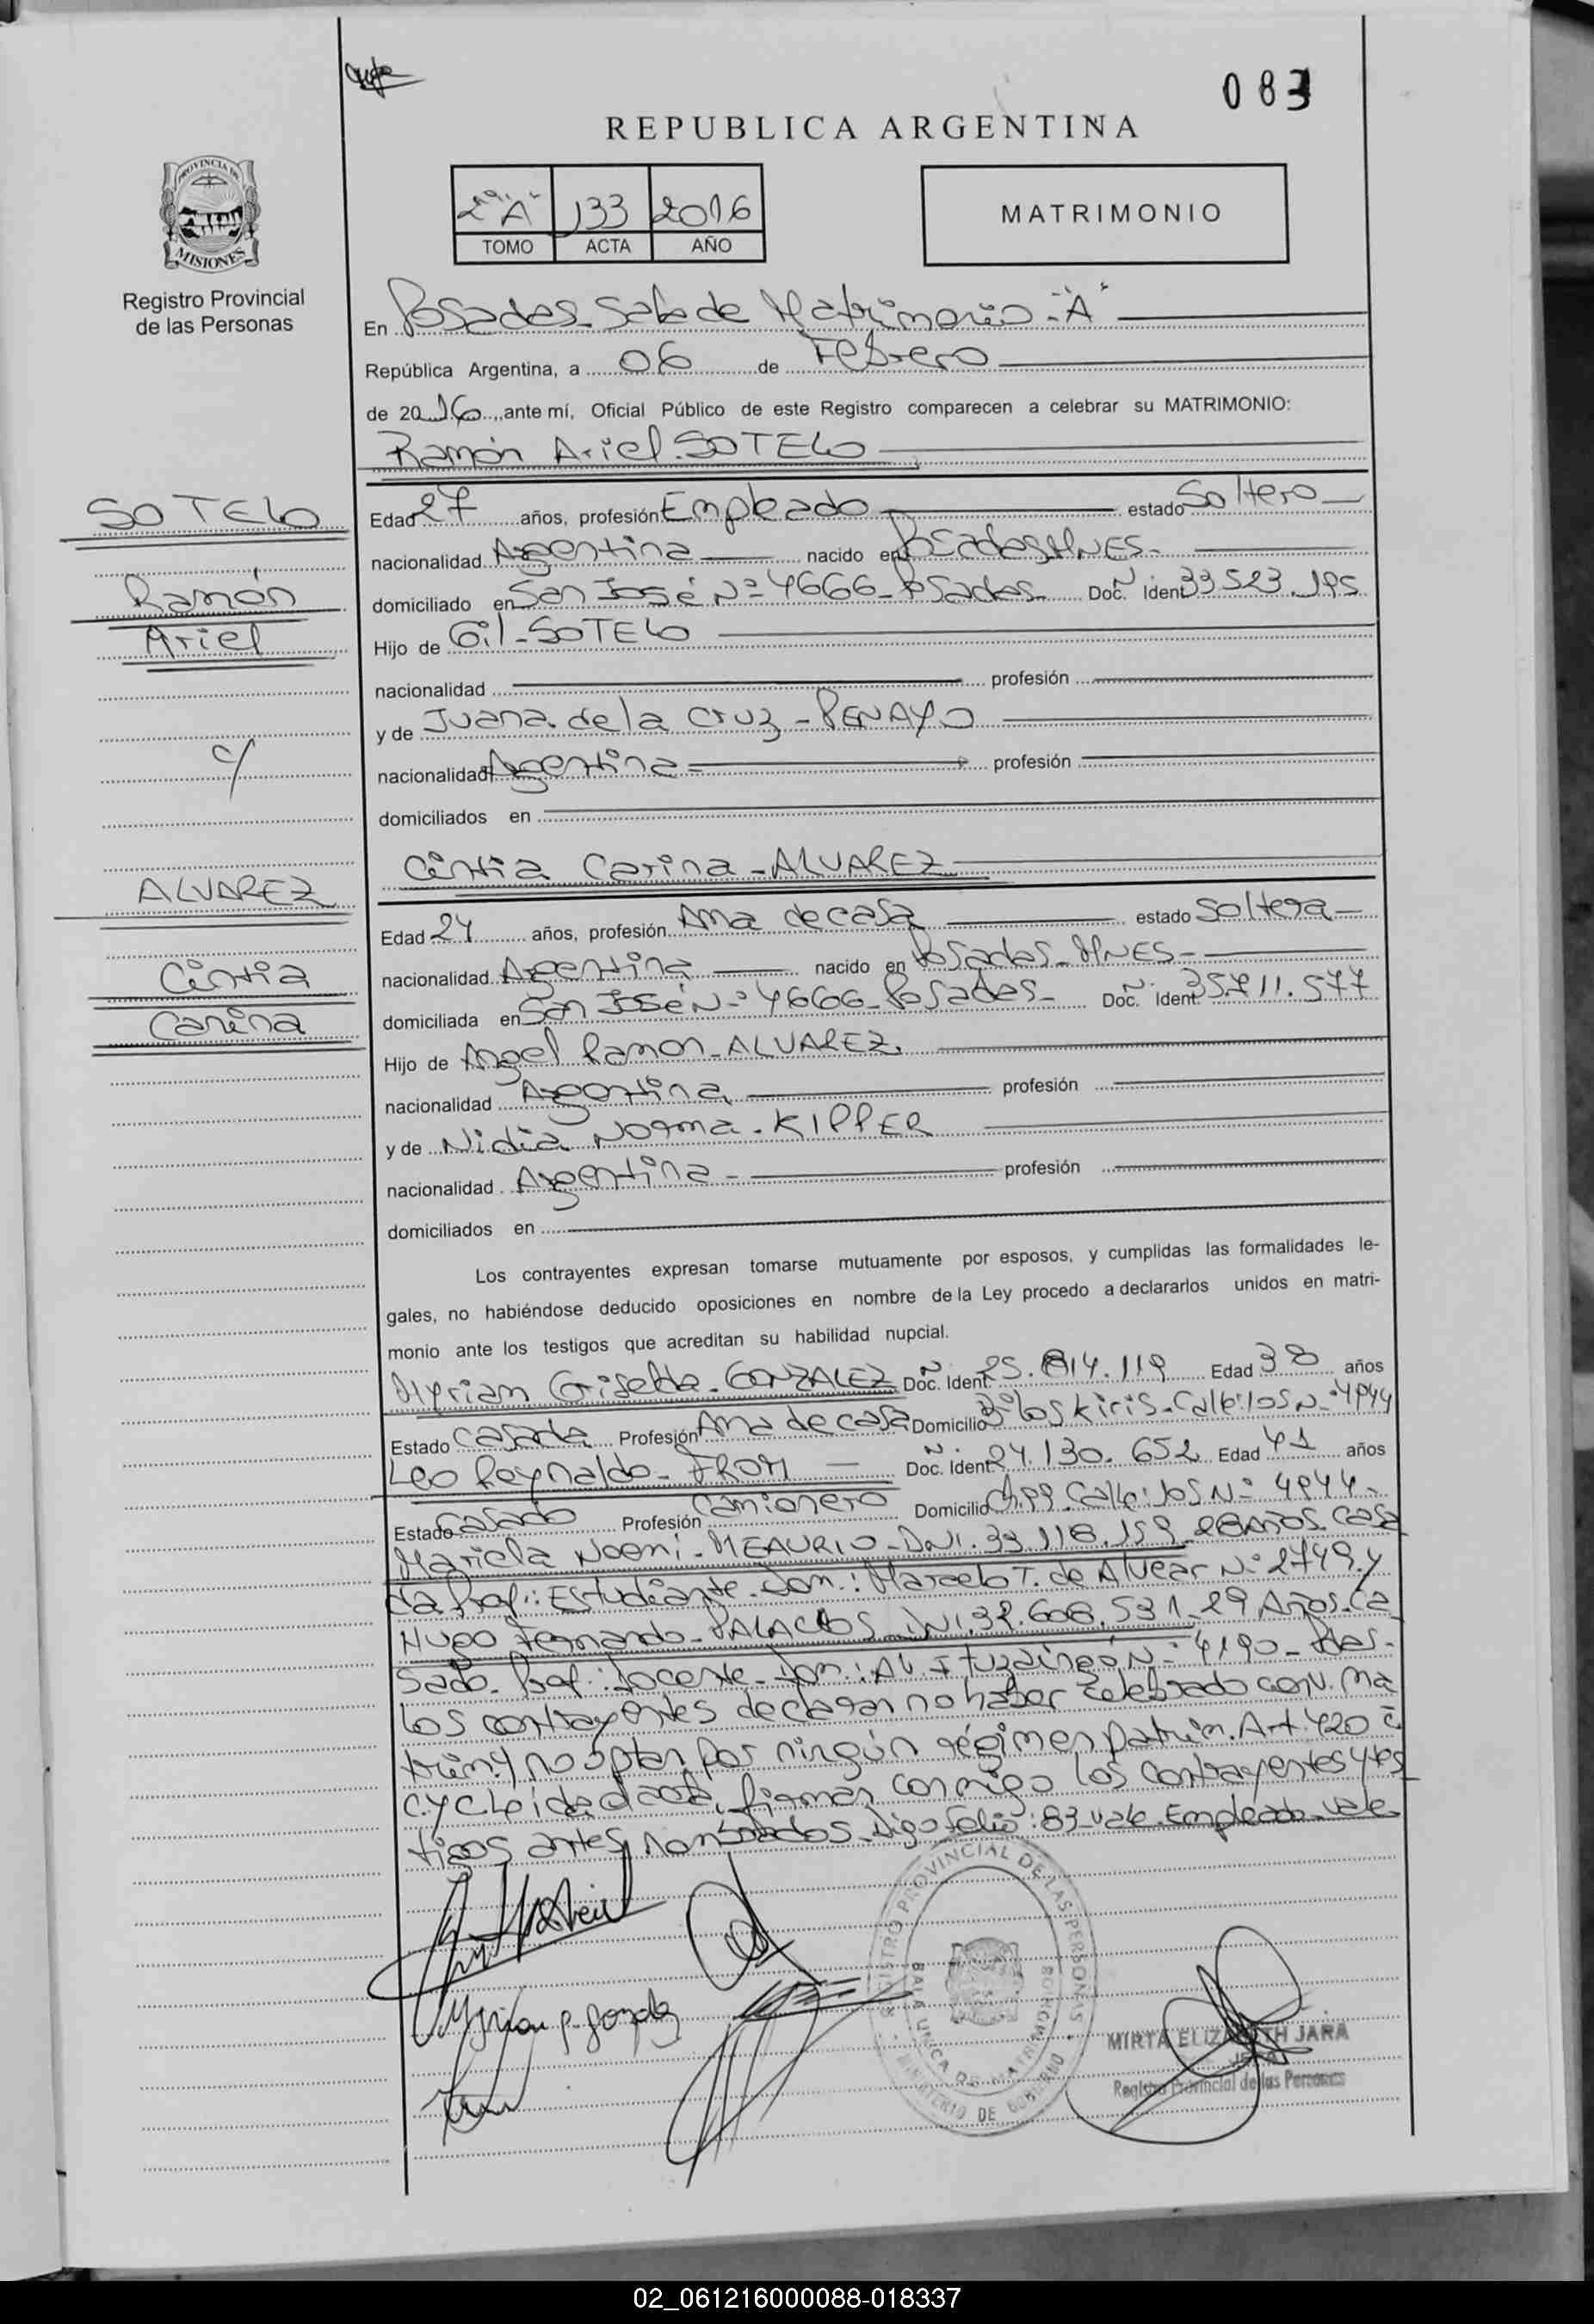 083
REPUBLICA ARGENTINA
2º "A" 133 2016
TOMO ACTA AÑO
MATRIMONIO
PROVINCIA DE
MISIONES
Registro Provincial
de las Personas
En Posadas-Sala de Matrimonio-"A"
República Argentina, a 06 de Febrero
de 2016, ante mí, Oficial Público de este Registro comparecen a celebrar su MATRIMONIO:
Ramón Ariel-SOTELO
SOTELO
Ramón
Ariel
c/
ALVAREZ
Cintia
Carina
Edad 27 años, profesión Empleado estado Soltero
nacionalidad Argentina nacido en Posadas-MNES-
domiciliado en San José Nº 4666-Posadas- Doc. Ident 33.523.195
Hijo de Gil-SOTELO
nacionalidad profesión
y de Juana de la Cruz-PENAYO
nacionalidad Argentina- profesión
domiciliados en
Cintia Carina-ALVAREZ
Edad 24 años, profesión Ama de casa estado Soltera
nacionalidad Argentina nacido en Posadas-MNES-
domiciliada en San José Nº 4666-Posadas- Doc. Ident 35.711.577
Hijo de Angel Ramon-ALVAREZ
nacionalidad Argentina profesión
y de Nidia Norma-KIPPER
nacionalidad Argentina- profesión
domiciliados en
Los contrayentes expresan tomarse mutuamente por esposos, y cumplidas las formalidades le-
gales, no habiéndose deducido oposiciones en nombre de la Ley procedo a declararlos unidos en matri-
monio ante los testigos que acreditan su habilidad nupcial.
Myriam Griselda-GONZALEZ Doc. Ident 25.814.119 Edad 38 años
Estado Casada Profesión Ama de casa Domicilio Bº los Kiris-Calle:105 Nº 4944
Leo Reynaldo-FROM Doc. Ident 24.130.652 Edad 41 años
Estado Casado Profesión Camionero Domicilio Calle:105 Nº 4944
Mariela Noemí-MEAURIO-DNI.33.118.159-28 Años. Casa
da Prof.: Estudiante. Dom.: Marcelo T. de Alvear Nº 2749 y
Hugo Fernando-PALACIOS-DNI.32.608.531-29 Años. Ca
sado. Prof.: Docente-Dom.: Av. Ituzaingó Nº 4190-Pdas.-
Los contrayentes declaran no haber celebrado conv. ma
trim. y no optan por ningún régimen patrim. Art. 420 C
C.yC. Leída el acta, firman conmigo los contrayentes y tes
tigos antes nombrados-Digo folio: 83-vale. Empleado-vale
Myrian G. Gonzalez
REGISTRO PROVINCIAL DE LAS PERSONAS
MINISTERIO DE GOBIERNO
MIRTA ELIZABETH JARA
JEFA
Registro Provincial de las Personas
02_061216000088-018337